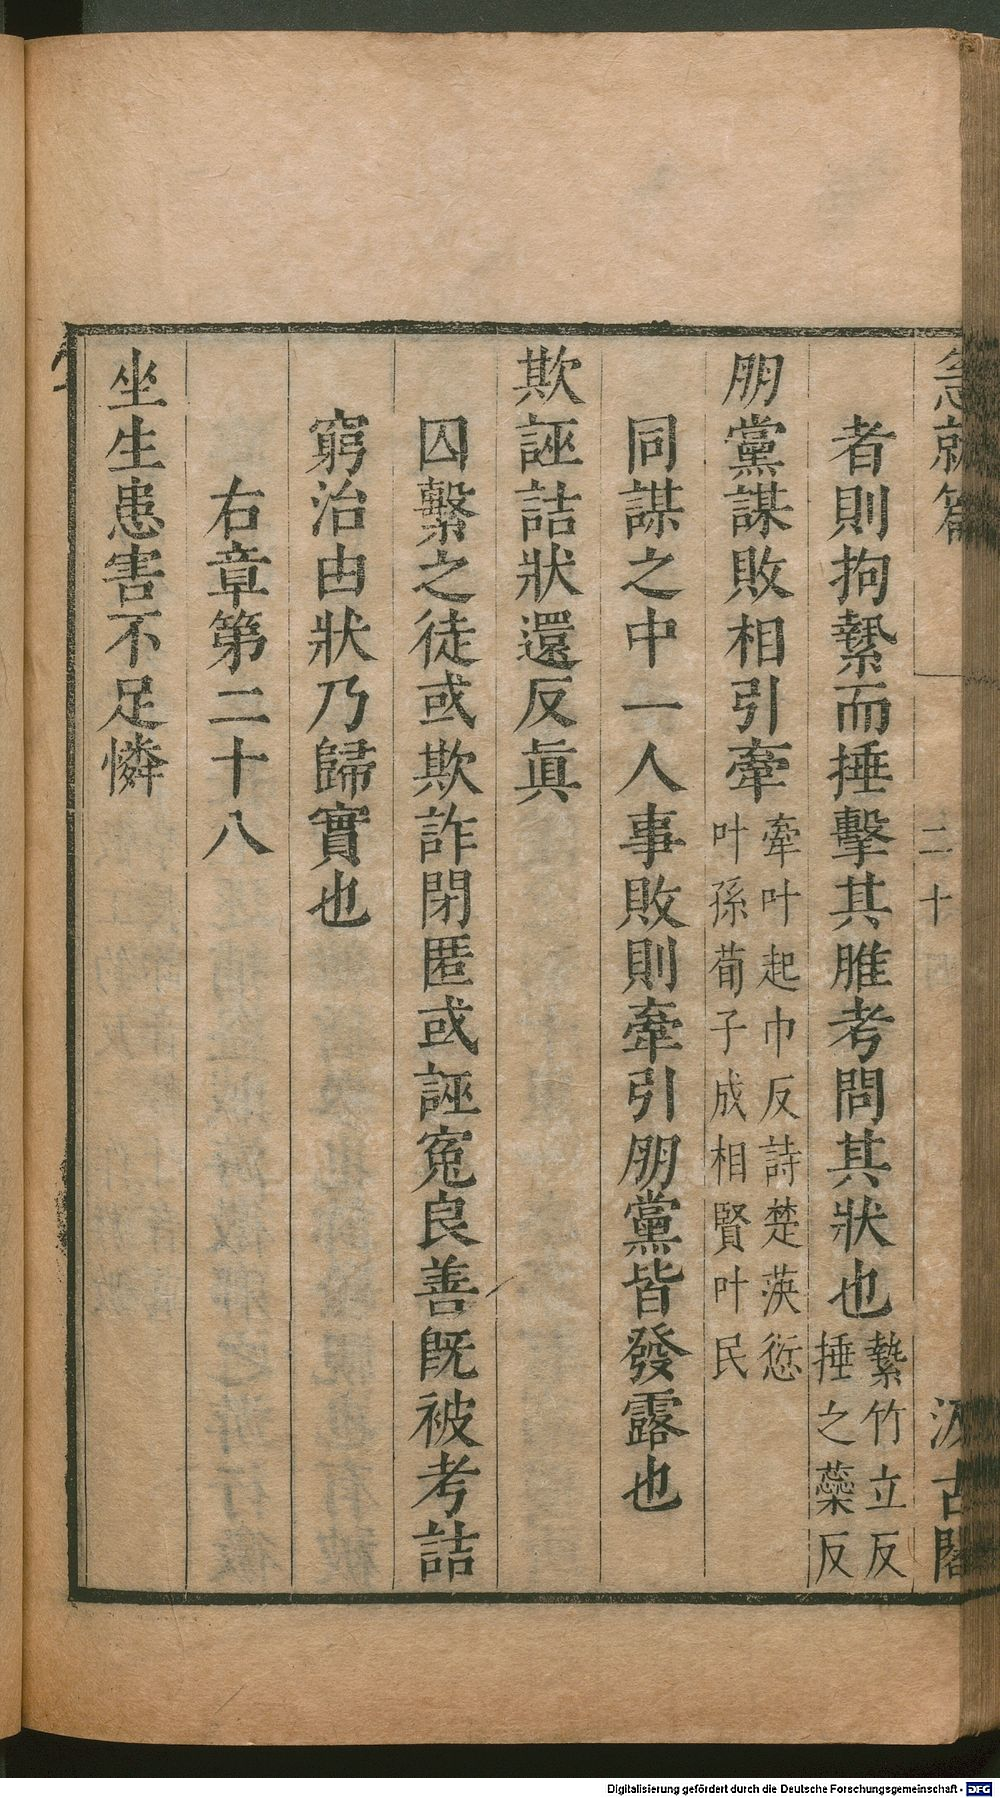 急就篇 二十 汲古閣
者則拘縶而捶擊其脽考問其狀也縶竹立反
捶之蘂反
朋黨謀敗相引牽牽叶起巾反詩楚茨愆
叶孫荀子成相賢叶民
同謀之中一人事敗則牽引朋黨皆發露也
欺誣詰狀還反眞
囚繫之徒或欺詐閉匿或誣寃良善旣被考詰
窮治由狀乃歸實也
右章第二十八
坐生患害不足憐
Digitalisierung gefördert durch die Deutsche Forschungsgemeinschaft - DFG